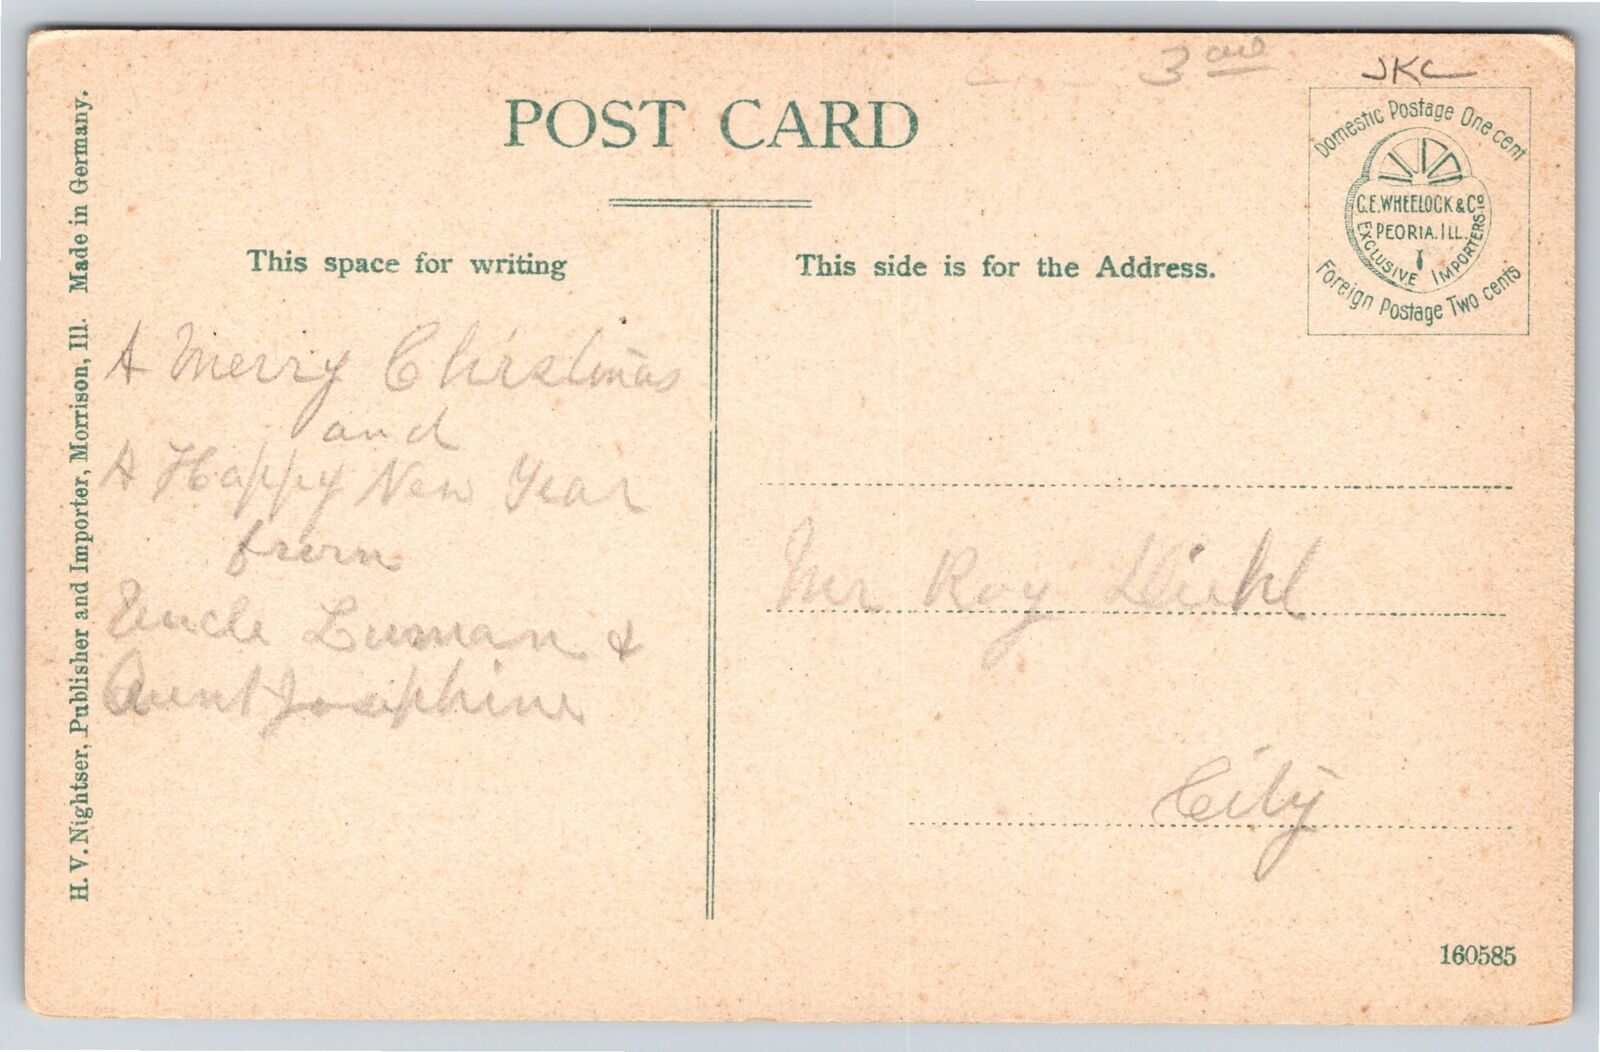 3
JKC
POST CARD
Domestic Postage One cent
C.E. WHEELOCK & Co
PEORIA. ILL.
EXCLUSIVE IMPORTERS
Foreign Postage Two cents
This space for writing
This side is for the Address.
A Merry Chirstmas
and
A Happy New Year
from
Uncle Luman &
Aunt Josephine
Mr Roy Diehl
City
H. V. Nightser, Publisher and Importer, Morrison, Ill. Made in Germany.
160585